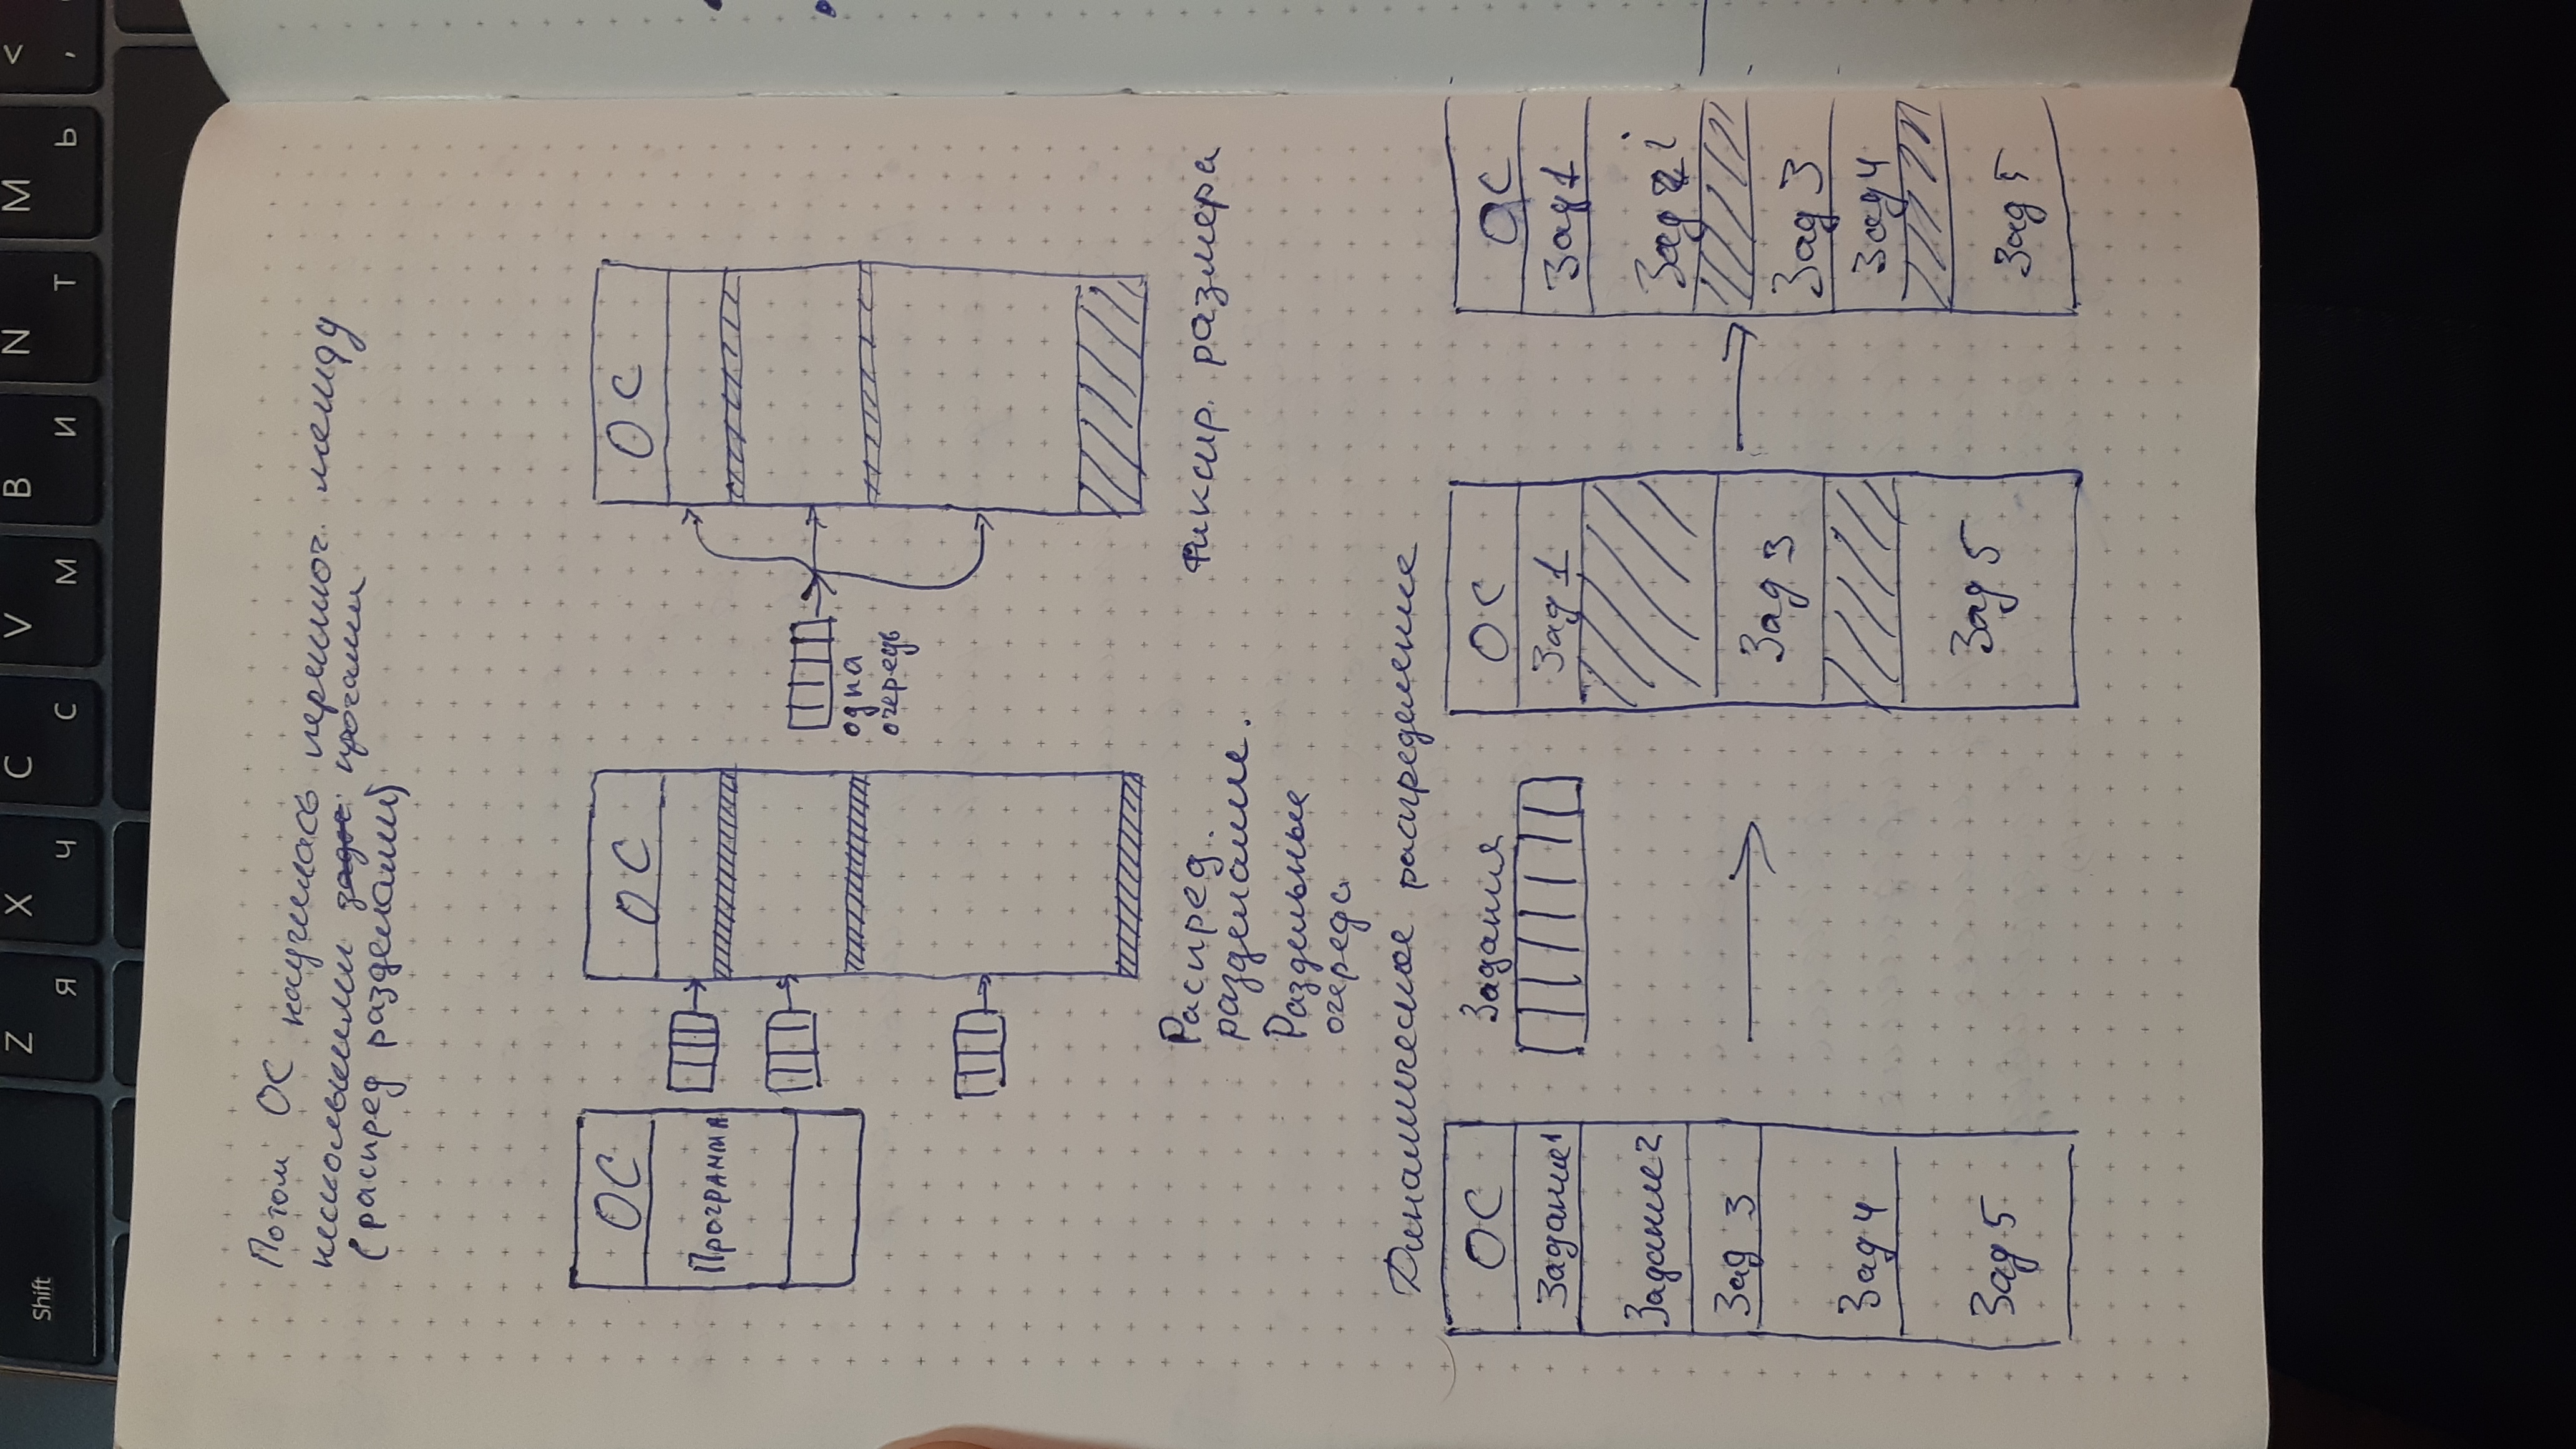 Shift
Z Я
X Ч
C С
V М
B И
N Т
M Ь
< ,
Потом ОС научилась переключ. между
несколькими прогами
(распред разделами)
ОС
Программа
ОС
ОС
одна
очередь
Распред.
разделами.
Раздельные
очереди
Фиксир. размера
Динамическое распределение
ОС
Задание1
Задание2
Зад 3
Зад 4
Зад 5
Задания
ОС
Зад 1
Зад 3
Зад 5
ОС
Зад 1
Зад i
Зад 3
Зад 4
Зад 5